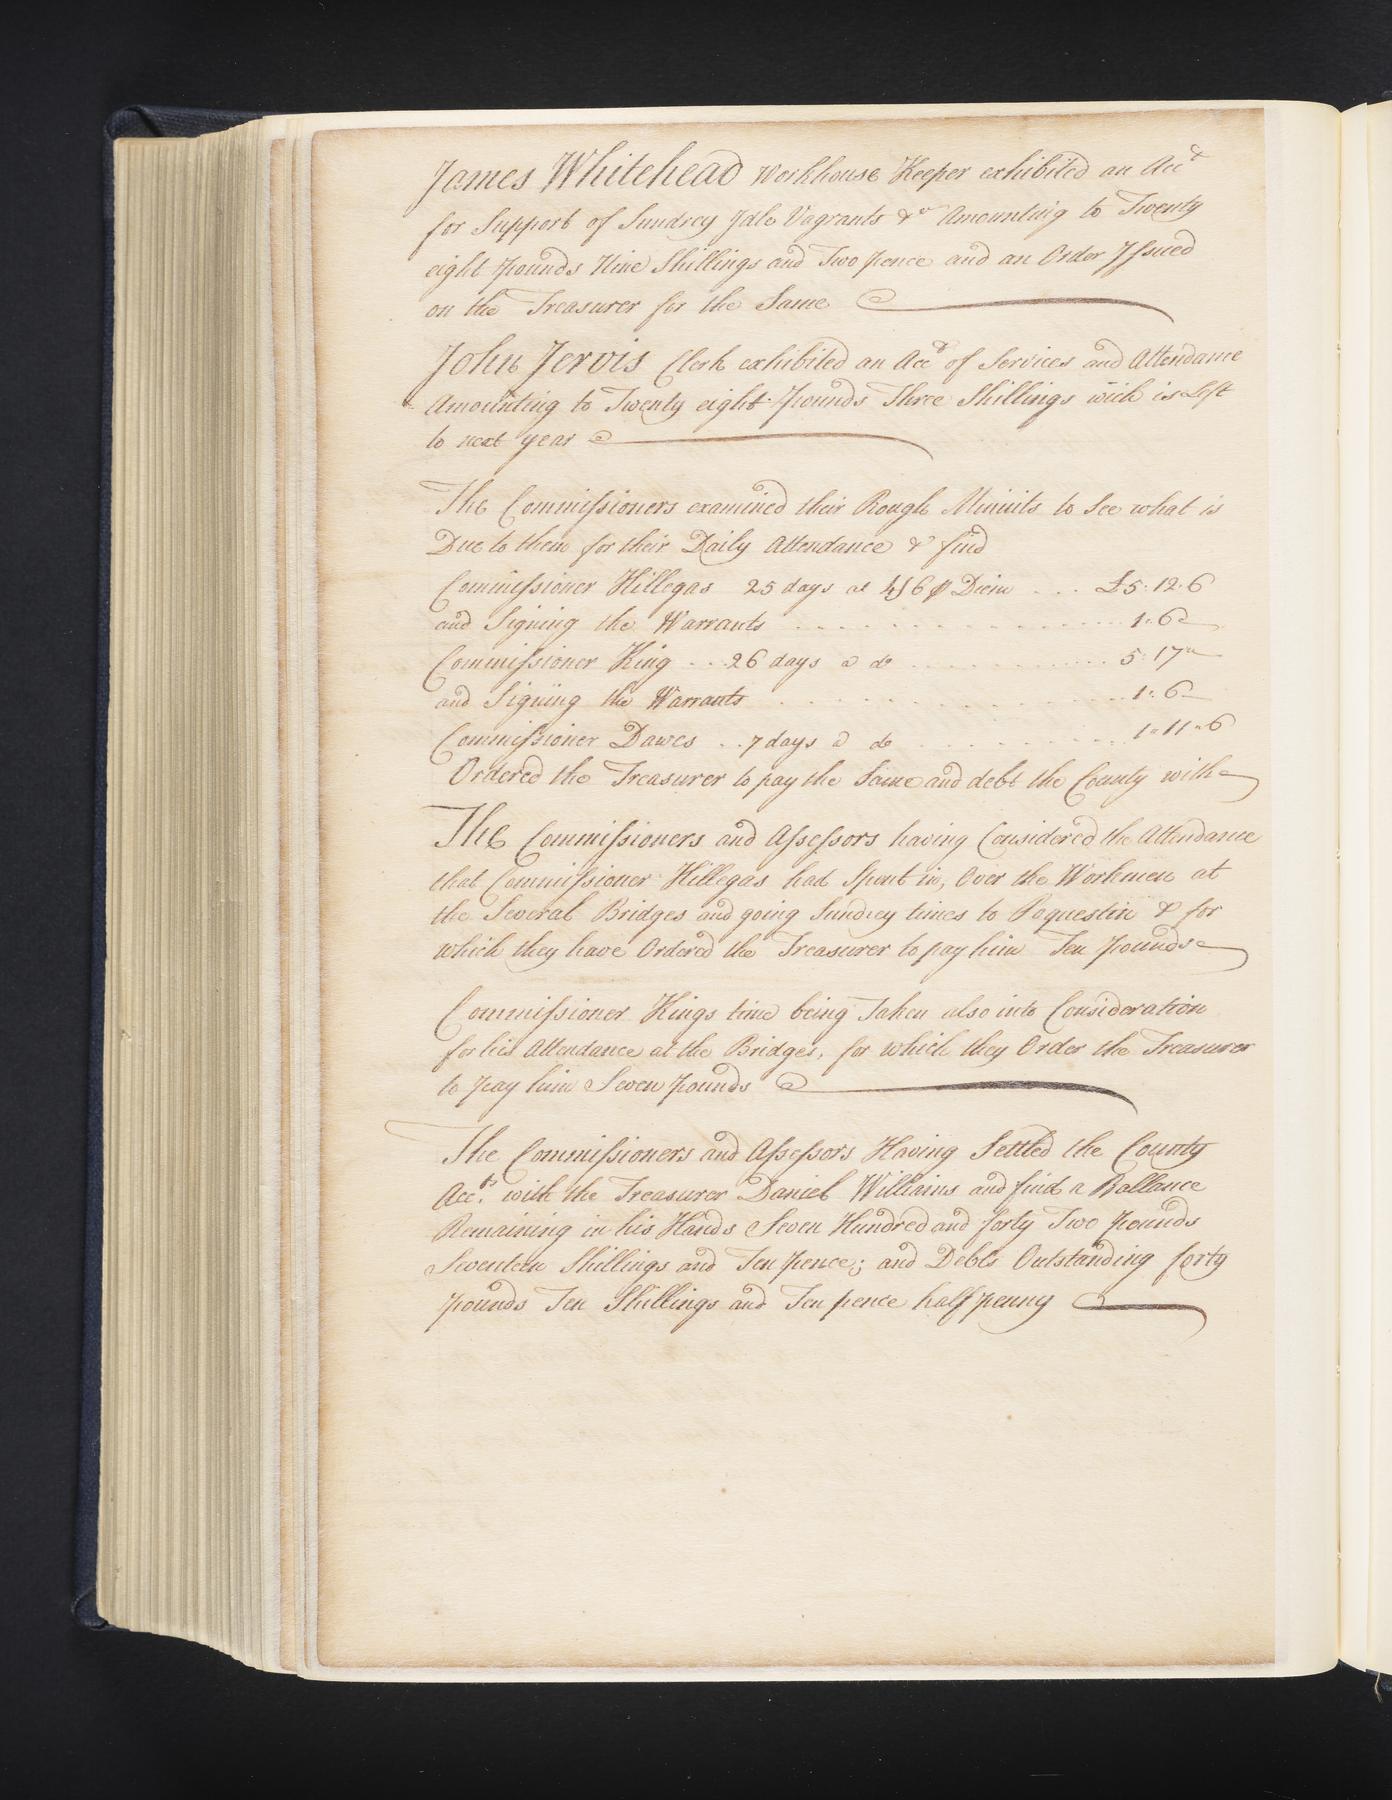 James Whitehead Workhouse Keeper exhibited an Acct
for Support of Sundrey Idle Vagrants &c Amounting to Twenty
eight pounds Nine Shillings and Two pence and an Order Issued
on the Treasurer for the Same
John Jervis Clerk exhibited an Acct of Services and Attendance
Amounting to Twenty eight pounds Three Shillings wich is Left
to next year
The Commissioners examined their Rough Minuits to See what is
Due to them for their Daily Attendance & find
Commissioner Hillegas 25 days at 4/6 ⅌ Diem . . . £5 . 12 . 6
and Signing the Warrants 1 . 6
Commissioner King . . . 26 days @ do 5 : 17
and Signing the Warrants 1 : 6
Commissioner Dawes . . 7 days @ do 1 " 11 " 6
Ordered the Treasurer to pay the Same and debt the County with
The Commissioners and Assessors having Considered the Attendance
that Commissioner Hillegas had Spent in, Over the Workmen at
the Several Bridges and going Sundrey times to Pequestin & for
which they have Ordered the Treasurer to pay him Ten pounds
Commissioner Kings time being Taken also into Consideration
for his Attendance at the Bridges, for which they Order the Treasurer
to pay him Seven pounds
The Commissioners and Assessors Having Settled the County
Accts. with the Treasurer Daniel Williams and find a Ballance
Remaining in his Hands Seven Hundred and forty Two pounds
Seventeen Shillings and Ten pence; and Debts Outstanding forty
pounds Ten Shillings and Ten pence half penny